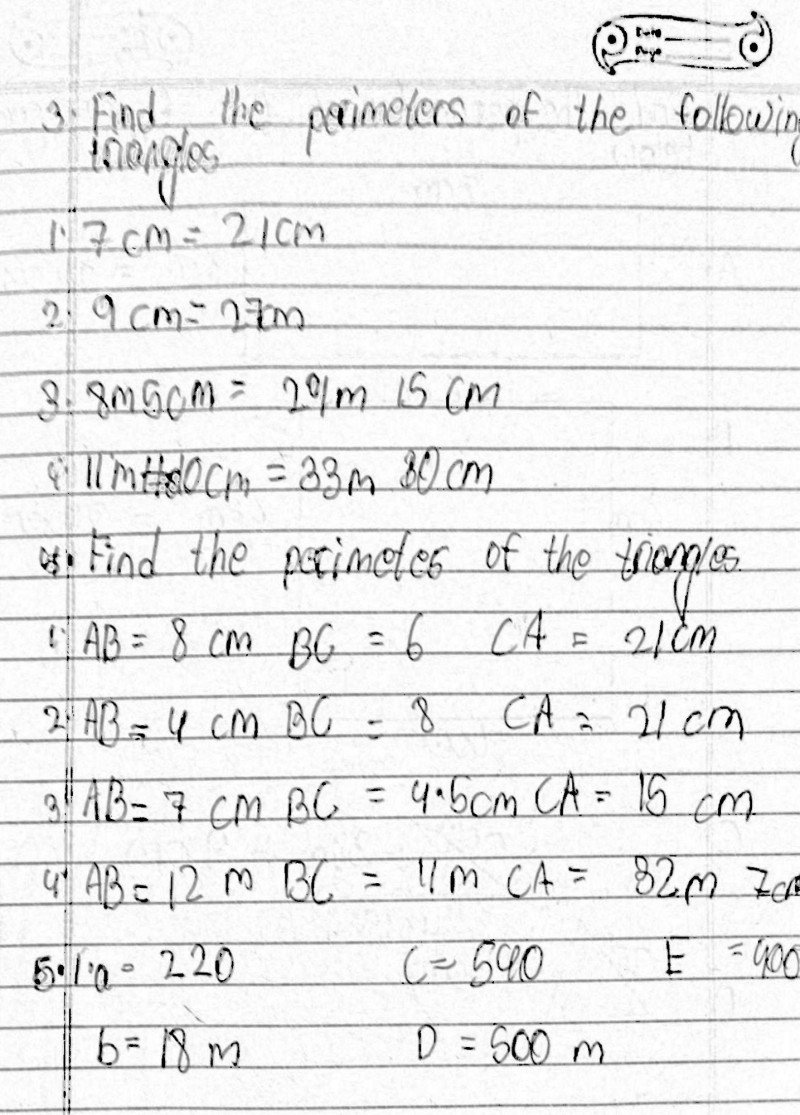 Date
Page
3. Find the perimeters of the following
triangles
1. 7 cm = 21cm
2. 9 cm = 27cm
3. 8m5cm = 24m 15 cm
4. 11m 10cm = 33m 30 cm
4. Find the perimetes of the triangles.
1. AB = 8 cm BC = 6 CA = 21cm
2. AB = 4 cm BC = 8 CA = 21 cm
3. AB = 7 cm BC = 4.5cm CA = 15 cm
4. AB = 12 m BC = 11m CA = 32m 7cm
5. 1. a = 220 C = 540 E = 900
b = 18 m D = 500 m